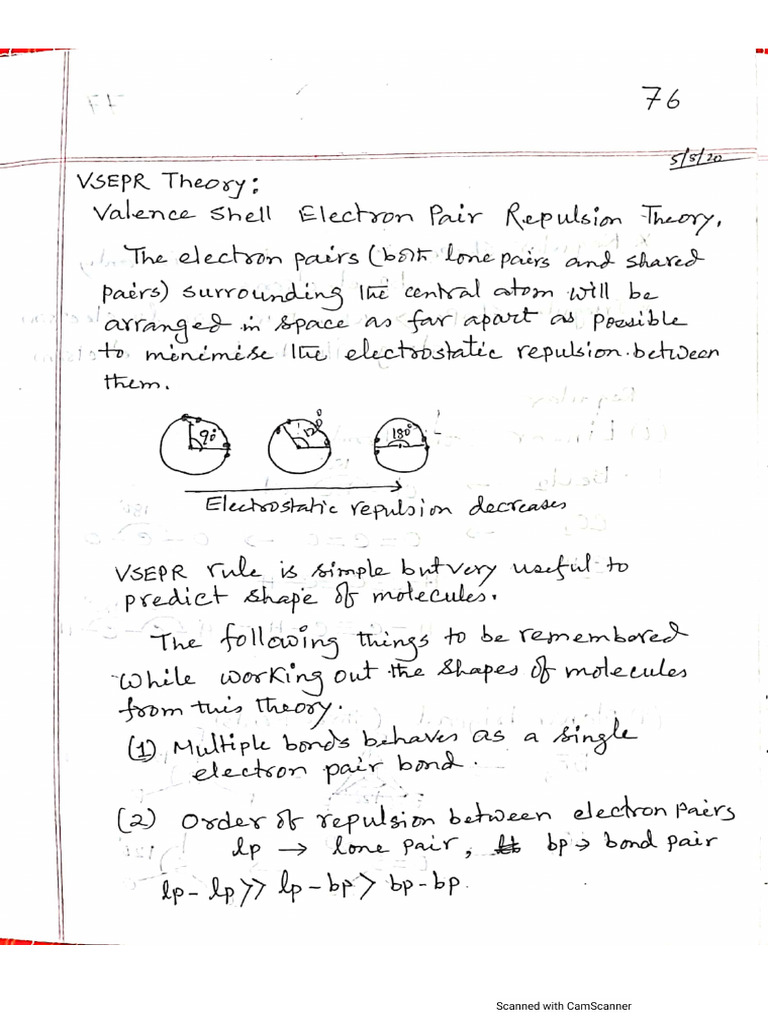 76
5/5/20
VSEPR Theory:
Valence Shell Electron Pair Repulsion Theory.
The electron pairs (both lone pairs and shared
paires) surrounding the central atom will be
arranged in space as far apart as possible
to minimise the electrostatic repulsion between
them.
90° 120° 180°
Electrostatic repulsion decreases
VSEPR rule is simple but very useful to
predict shape of molecules.
The following things to be remembored
While working out the shapes of molecules
from this theory.
(1) Multiple bonds behaves as a single
electron pair bond.
(2) Order of repulsion between electron pairs
lp → lone pair, bp → bond pair
lp - lp >> lp - bp > bp - bp.
Scanned with CamScanner